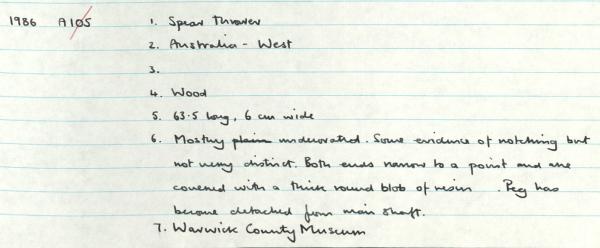 1986 A105 1. Spear Thrower
2. Australia - West
3.
4. Wood
5. 63.5 long, 6 cm wide
6. Mostly plain undecorated. Some evidence of notching but
not very distinct. Both ends narrow to a point and are
covered with a thick round blob of resin . Peg has
become detached from main shaft.
7. Warwick County Museum